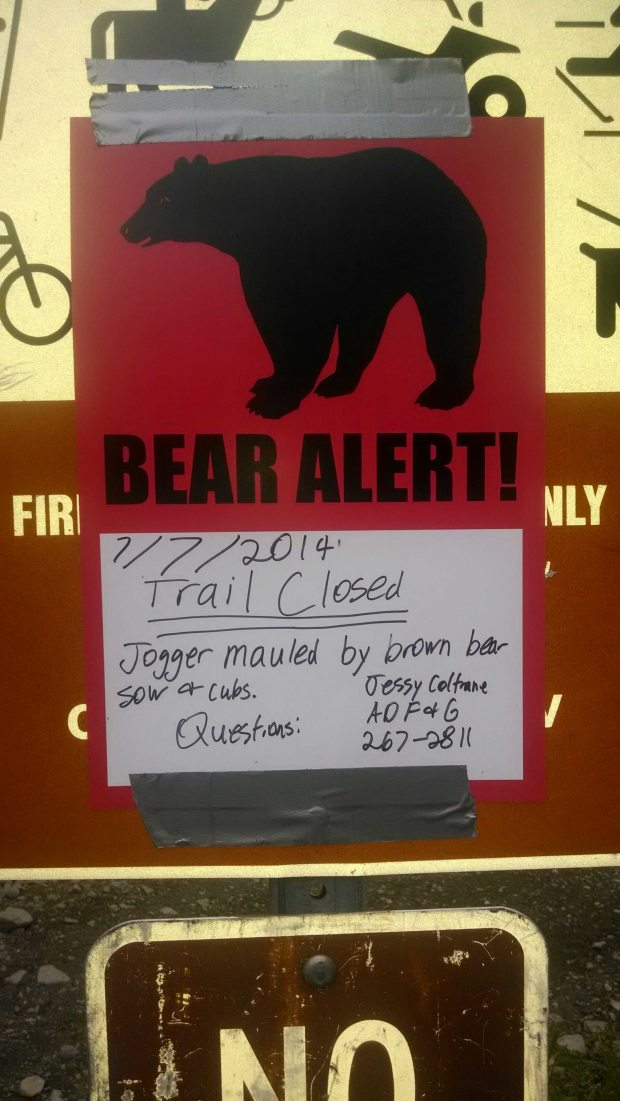 BEAR ALERT!
FIR
NLY
7/7/2014
Trail Closed
Jogger mauled by brown bear
sow & cubs.
Jessy Coltrane
ADF&G
Questions:
267-2811
C
V
NO